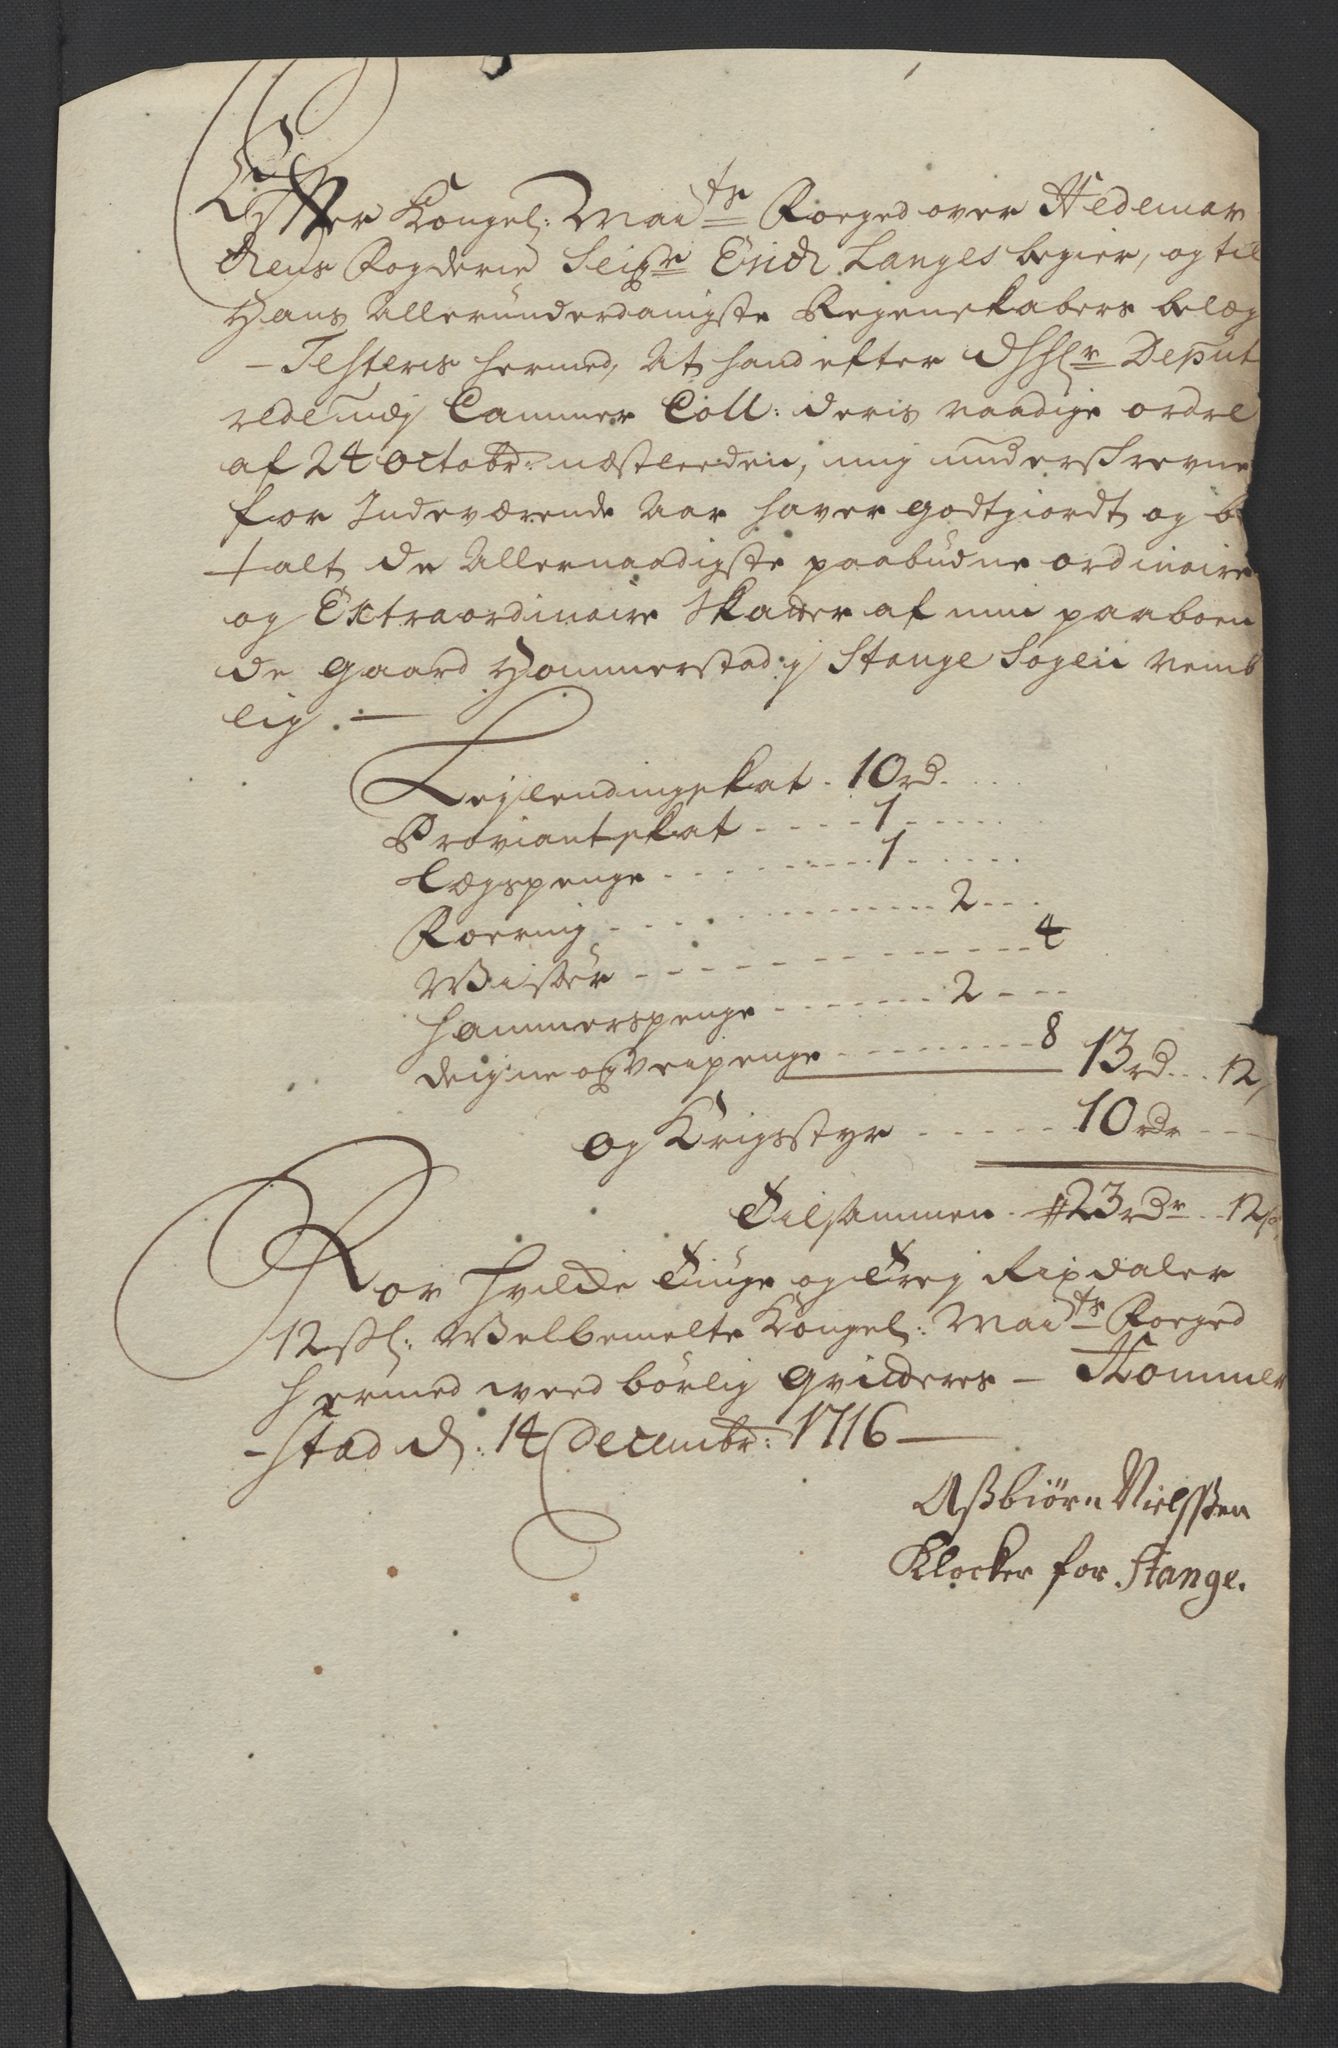 Efter Kongel: Mai<sup>ts</sup> Foeged over Hedemar
chens Fogderie Seig<sup>r</sup> Erich Langes begier, og til
Hans Allerunderdanigste Regenskabers belæg
- Testeris hermed, At hand efter Deput
rede udj Cammer Coll: deris naadige ordre
af 24 octobr: næstleeden, mig underskrevne
for Indeværende Aar haver godtgiordt og be
talt de Allernaadigste paabudne ordinaire
og Extraordinaire Skatter af min paaboen
de gaard Hommerstad j Stange Sogen nemb
lig. —
Lejlendingskat . 10 rd. ...
Proviantskat ..... 1 .....
Lægspenge ....... 1 .....
Foering ............. 2 ...
Wissør ............. 4
Hammerspenge ....... 2 ---
deigne og Veipenge ......... 8 13 rd ... 12
og Krigsstyr ...... 10 rdr ---
Tilsammen . # 23 rdr .. 12 s
For hvilche Tiuge og Trej Rixdaler
12 sl: Welbemelte Kongel: Mai<sup>ts</sup> Foeged
hermed weed børlig qvitteres — Hommer
-stad d: 14 Decembr: 1716 —
Aßbiørn Nielsßen
Klocker for Stange.